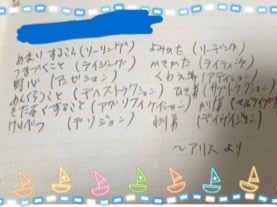 めまいすること (リーリング) よみかた (リーディング)
うまづくこと (ライジング) かきかた (ライティング)
野心 (アムビション) くわえ算 (アディション)
めいらくこと (ディストラクション) ひき算 (サブトラクション)
きたなくすること (アグリフィケイション) かけ算 (マルティ
けいべつ (デリジョン) わり算 (ディヴィジョン)
〜アリスより